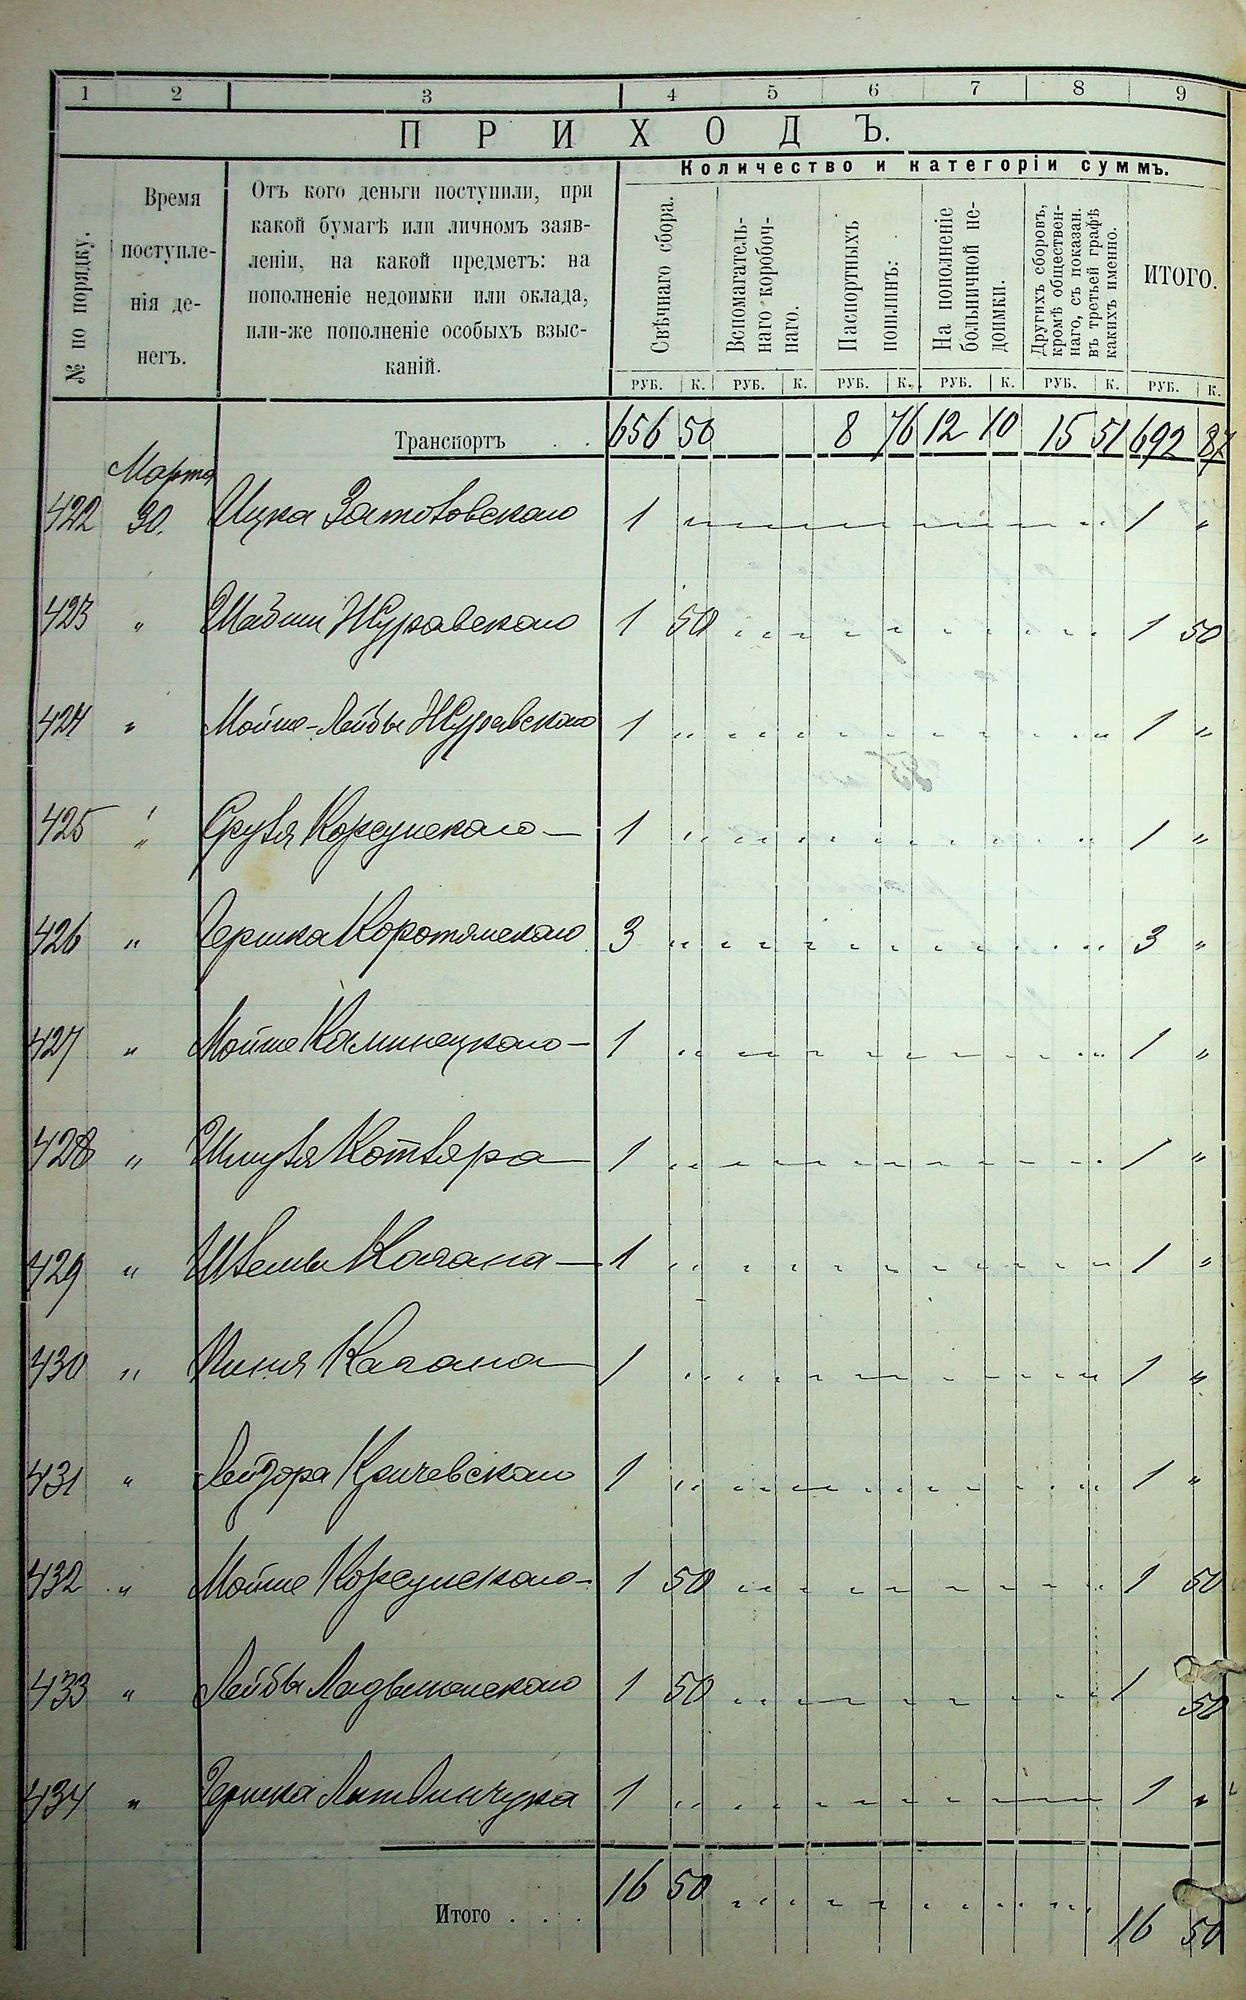 1 2 3 4 5 6 7 8 9
ПРИХОДЪ.
№ по порядку.
Время
поступле-
нія де-
негъ.
Отъ кого деньги поступили, при
какой бумагѣ или личномъ заяв-
леніи, на какой предметъ: на
пополненіе недоимки или оклада,
или-же пополненіе особыхъ взыс-
каній.
Количество и категоріи суммъ.
Свѣчнаго сбора.
Вспомагатель-
наго коробоч-
наго.
Паспортныхъ
пошлинъ:
На пополненіе
больничной не-
доимки.
Другихъ сборовъ,
кромѣ обществен-
наго, съ показан.
въ третьей графѣ
какихъ именно.
ИТОГО.
РУБ. К. РУБ. К. РУБ. К. РУБ. К. РУБ. К. РУБ. К.
Транспортъ . . 656 50 8 76 12 10 15 51 692 87
Марта
422 30. Ицка Затовского 1 1 "
423 " Шабши Журавского 1 50 1 50
424 " Мойше-Лейбы Журавского 1 1 "
425 " Срувя Корсунского 1 1 "
426 " Гершка Коротянского 3 3 "
427 " Мойше Каминецкого 1 1 "
428 " Шмувя Котвяра 1 1 "
429 " Кагана 1 1 "
430 " Пиня Кагана 1 1 "
431 " Лейзора Кричевского 1 1 "
432 " Мойше Корсунского 1 50 1 50
433 " Лейбы Ладыжинского 1 50 1 50
434 " Гершка Литвинчука 1 1 "
Итого . . . 16 50 16 50